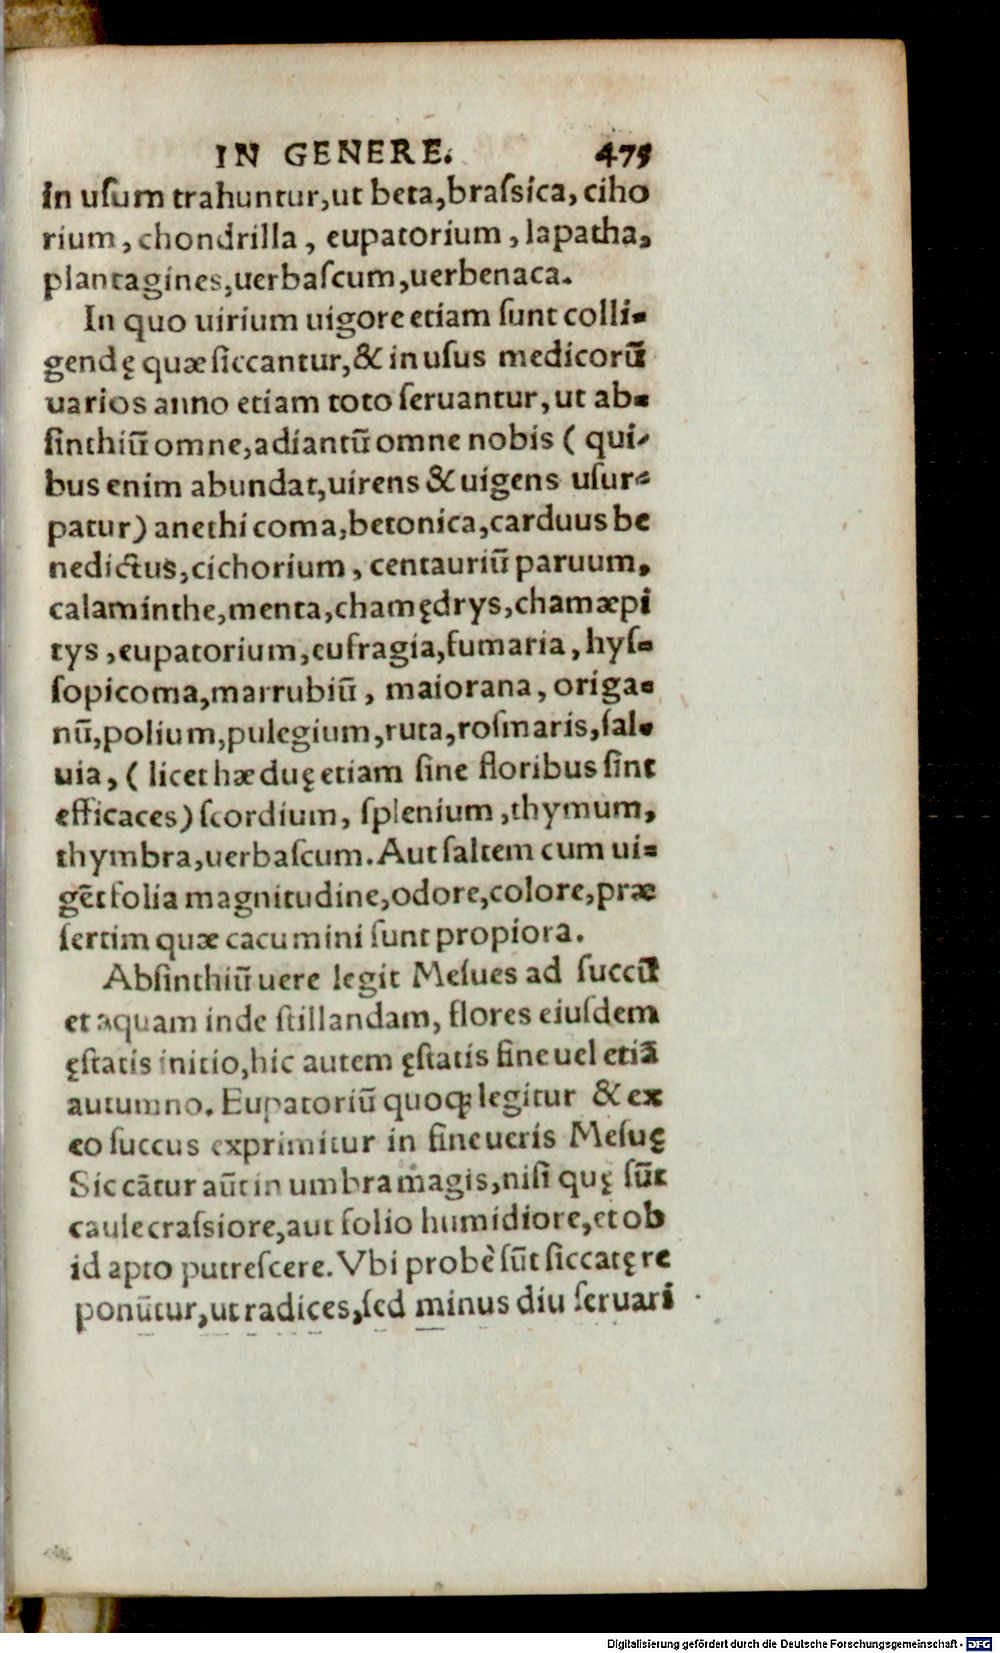 IN GENERE. 475
In uſum trahuntur,ut beta,braſsica, ciho
rium, chondrilla, eupatorium, lapatha,
plantagines,uerbaſcum,uerbenaca.
In quo uirium uigore etiam ſunt colli-
gendę quæ ſiccantur,& in uſus medicorũ
uarios anno etiam toto ſeruantur, ut ab-
ſinthiũ omne,adiantũ omne nobis ( qui-
bus enim abundat,uirens & uigens uſur-
patur) anethi coma,betonica,carduus be
nedictus,cichorium, centauriũ paruum,
calaminthe,menta,chamędrys,chamæpi
tys,eupatorium,eufragia,fumaria, hyſ-
ſopi coma,marrubiũ, maiorana, origa-
nũ,polium,pulegium,ruta,roſmaris,ſal-
uia, ( licet hæ duę etiam ſine floribus ſint
efficaces) ſcordium, ſplenium,thymum,
thymbra,uerbaſcum. Aut ſaltem cum ui-
gẽt folia magnitudine,odore,colore,præ
ſertim quæ cacumini ſunt propiora.
Abſinthiũ uere legit Meſues ad ſuccũ
et aquam inde ſtillandam, flores eiuſdem
ęſtatis initio,hic autem ęſtatis fine uel etiã
autumno. Eupatoriũ quoqꝫ legitur & ex
eo ſuccus exprimitur in fine ueris Meſuę
Siccãtur aũt in umbra magis,niſi quę ſũt
caule craſsiore,aut folio humidiore,et ob
id apto putreſcere. Vbi probè ſũt ſiccatę re
ponũtur,ut radices,ſed minus diu ſeruari
Digitalisierung gefördert durch die Deutsche Forschungsgemeinschaft - DFG